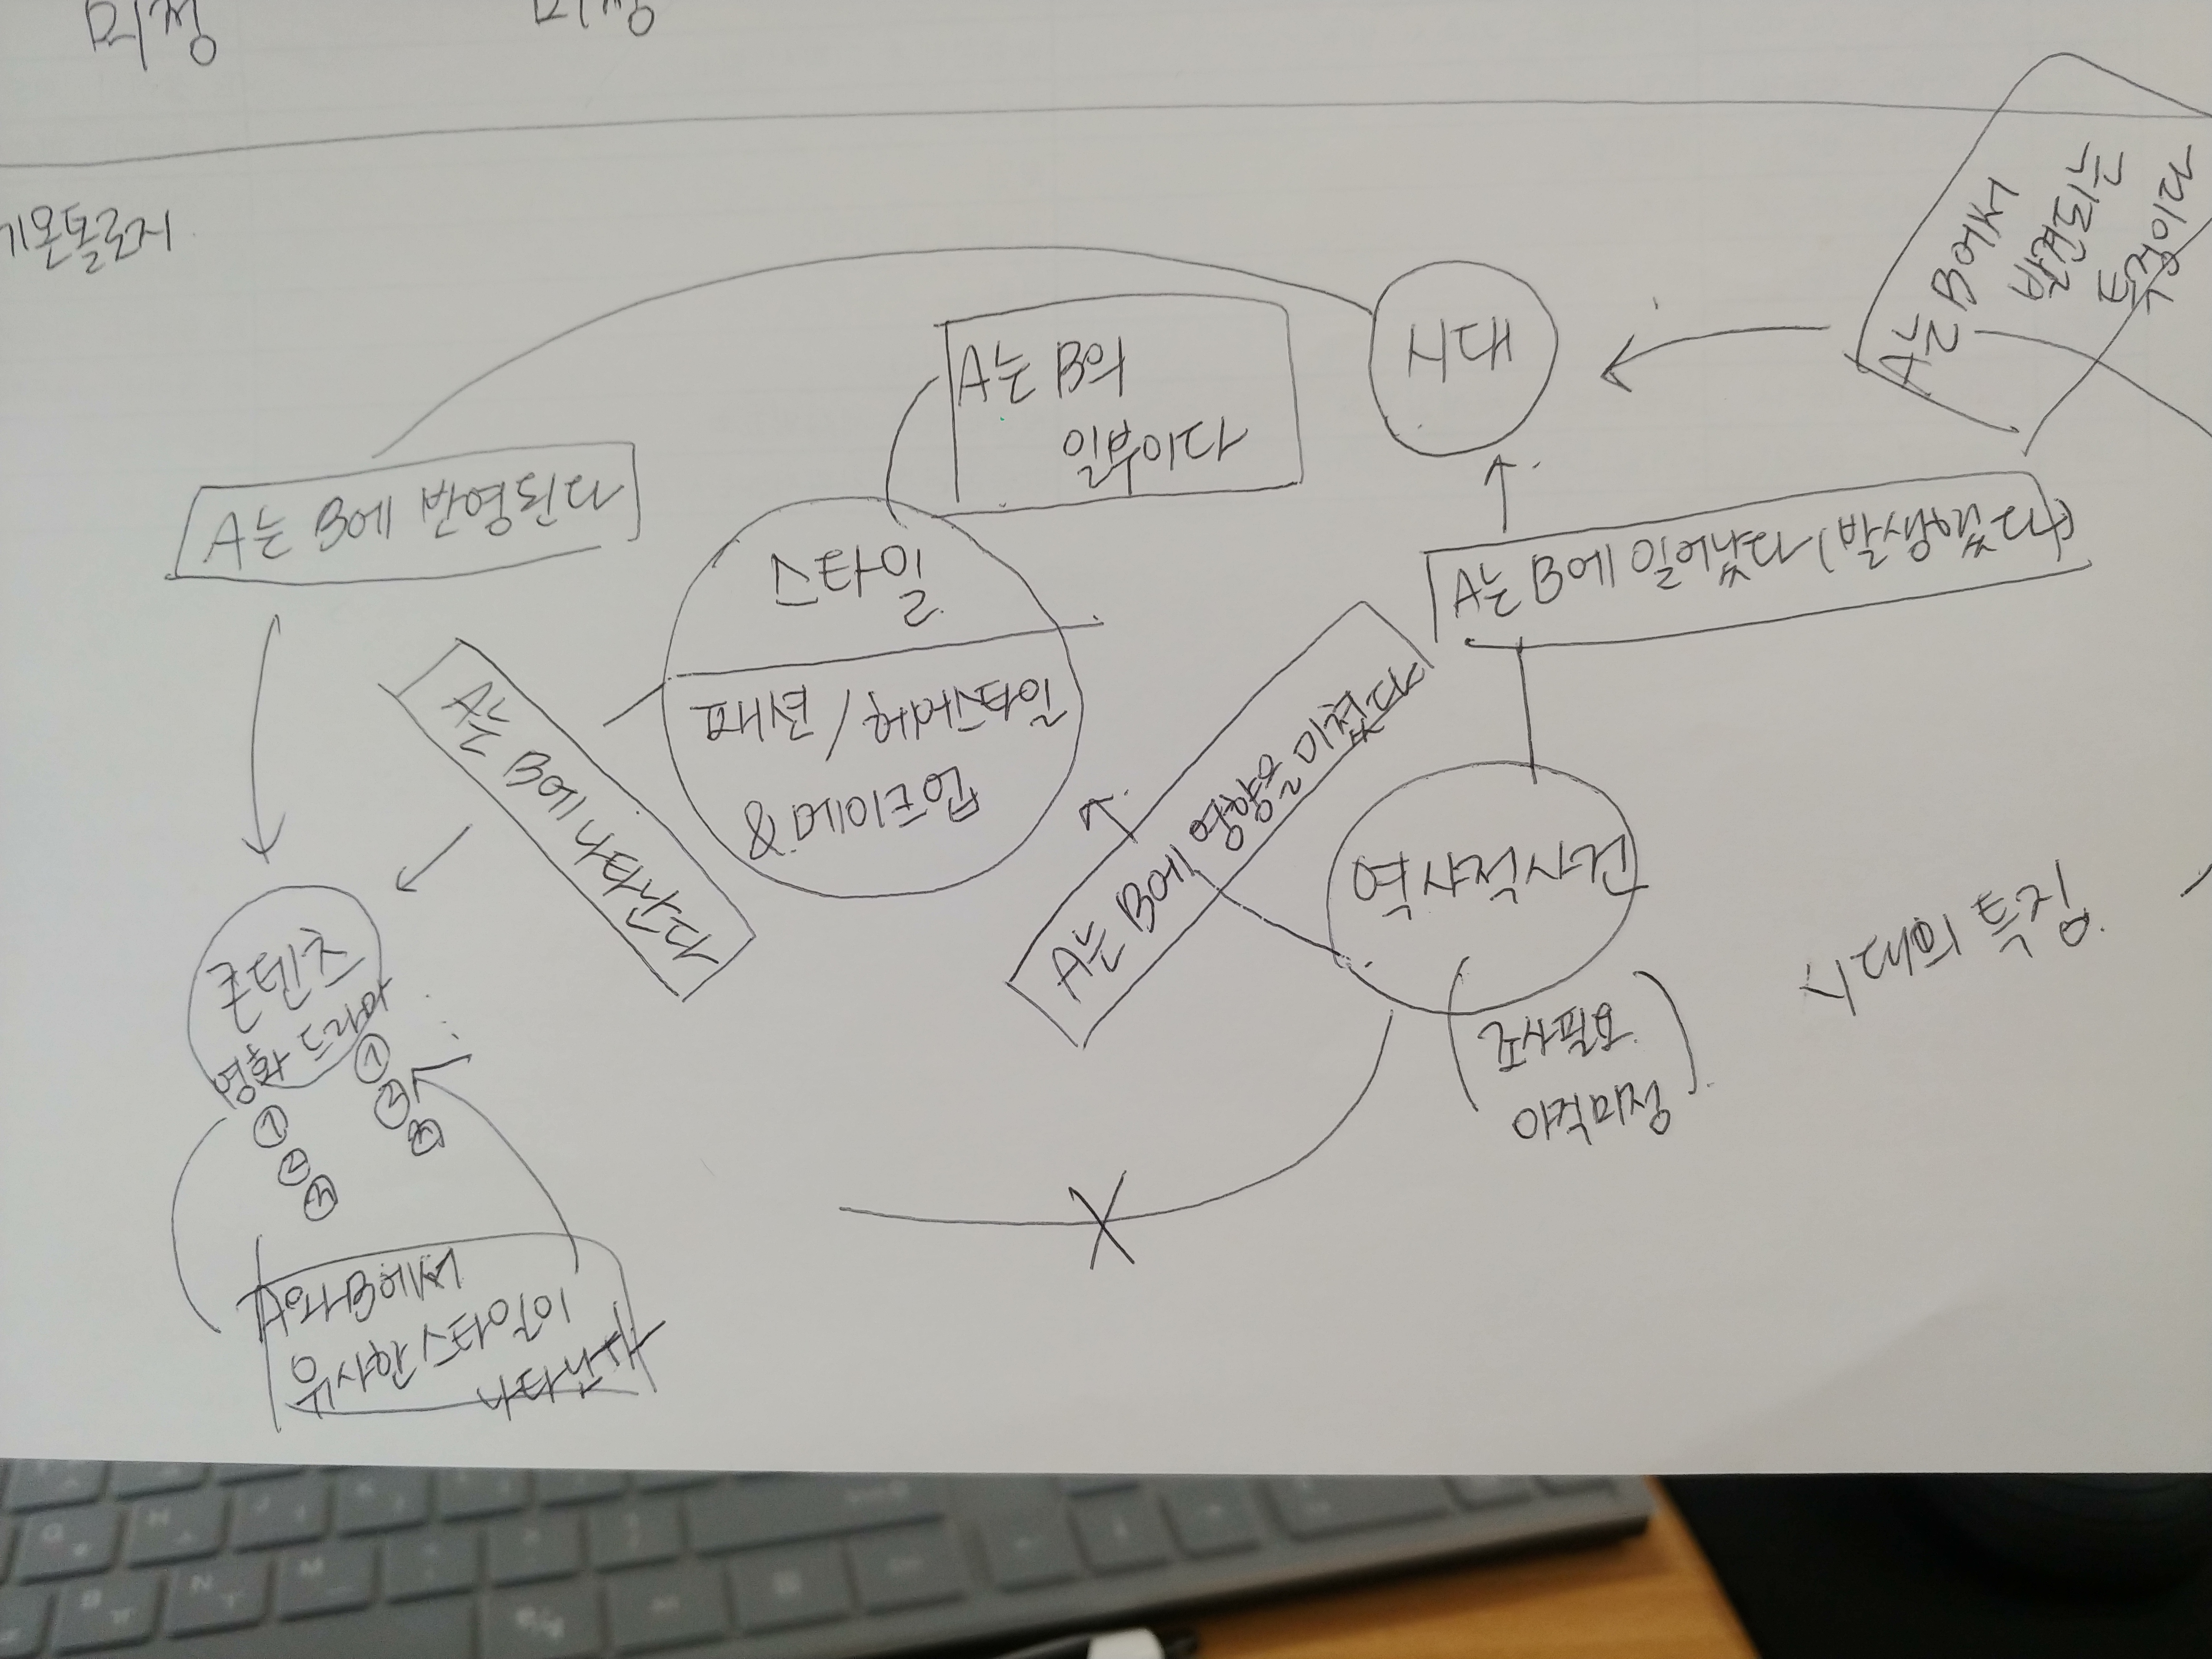 미정
미정
기온톨로지
A는 B에서
발견되는
특징이다
시대
A는 B의
일부이다
A는 B에 반영된다
A는 B에 일어났다 (발생했다)
스타일
패션 / 헤어스타일
& 메이크업
A는 B에 나타난다
A는 B에 영향을 미쳤다
역사적사건
조사필요
아직미정
시대의 특징
콘텐츠
영화 드라마
①
②
③
①
②
③
A와 B에서
유사한 스타일이
나타난다
X